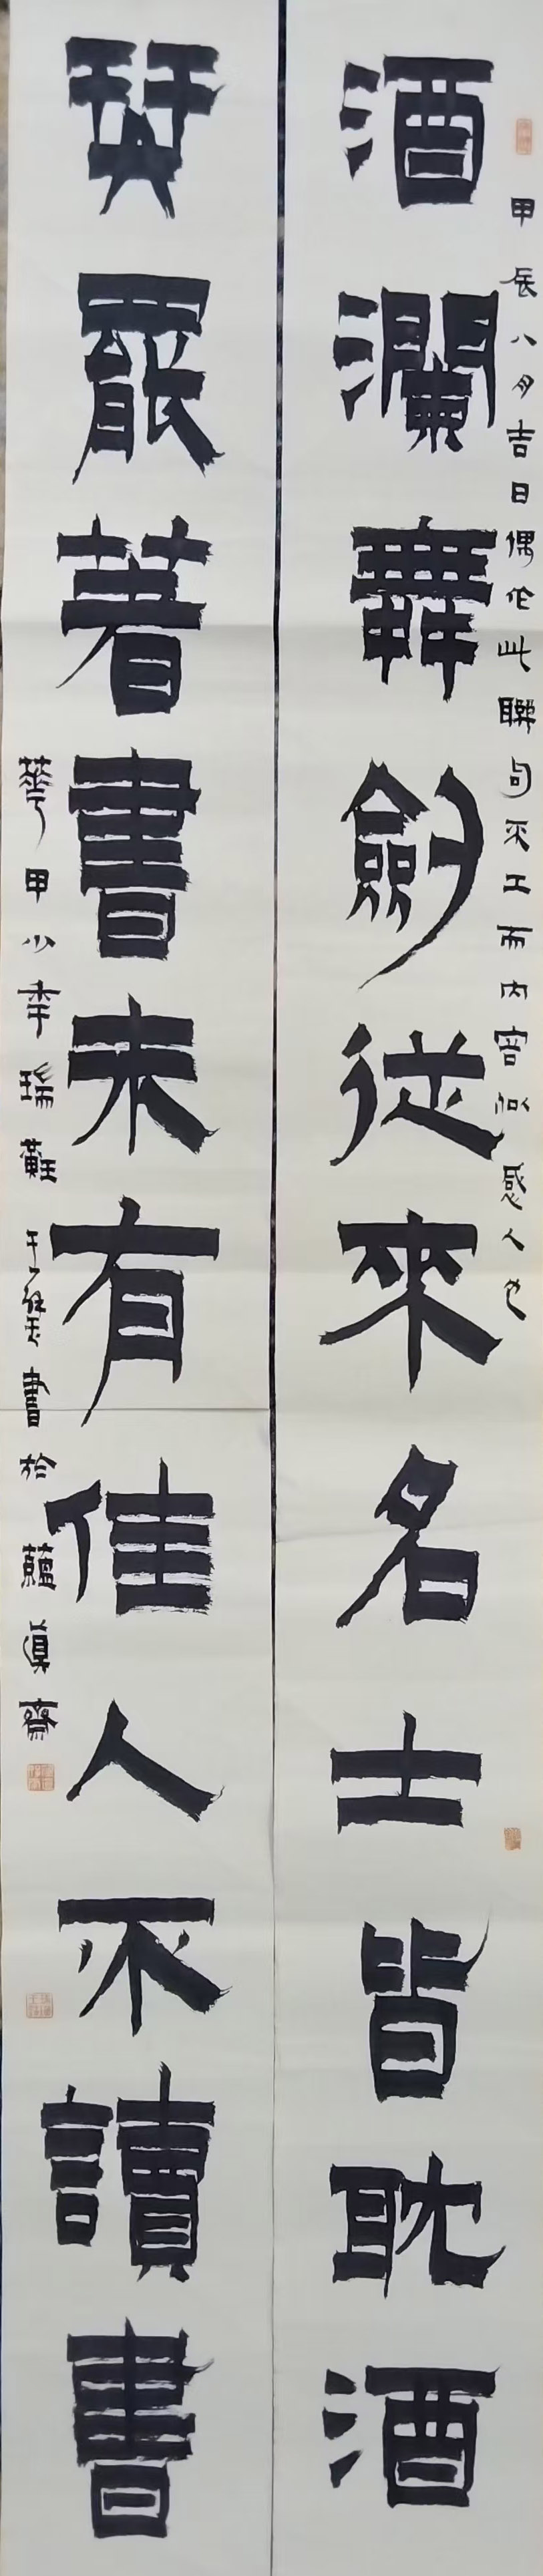 甲辰八月吉日偶作此聯句不工而內容似感人也
酒瀾舞劍從來名士皆耽酒
棊罷著書未有佳人不讀書
華甲少年瑞蘇書於蘊真齋